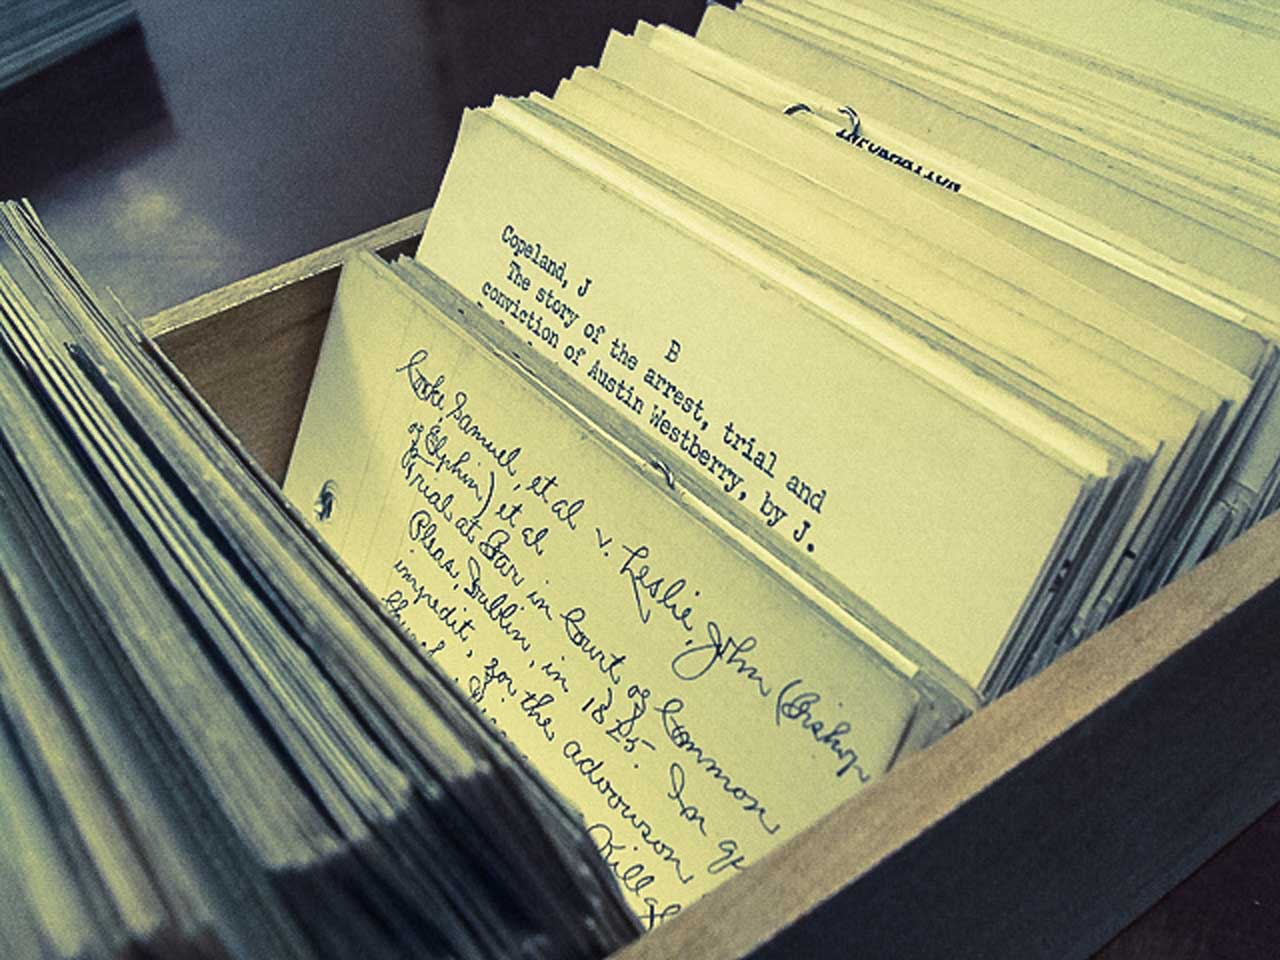 INFORMATION
Copeland, J
B
The story of the arrest, trial and
conviction of Austin Westberry, by J.
Cooke, Samuel, et al v. Leslie, John (Bishop
of Elphin) et al
Trial at Bar in Court of Common
Pleas, Dublin, in 1825. In
impedit, for the advowson
Church